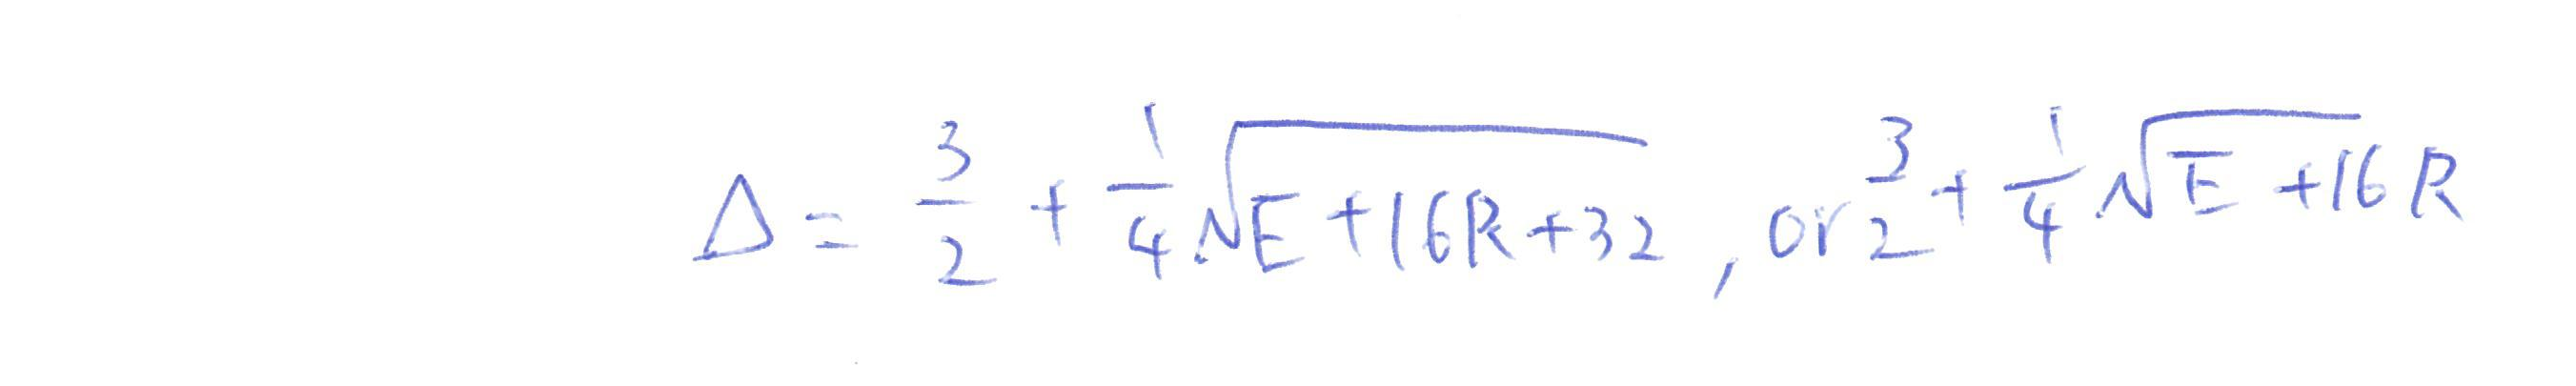 Δ = 3/2 + 1/4 √(E + 16R + 32), or 3/2 + 1/4 √(E + 16R)